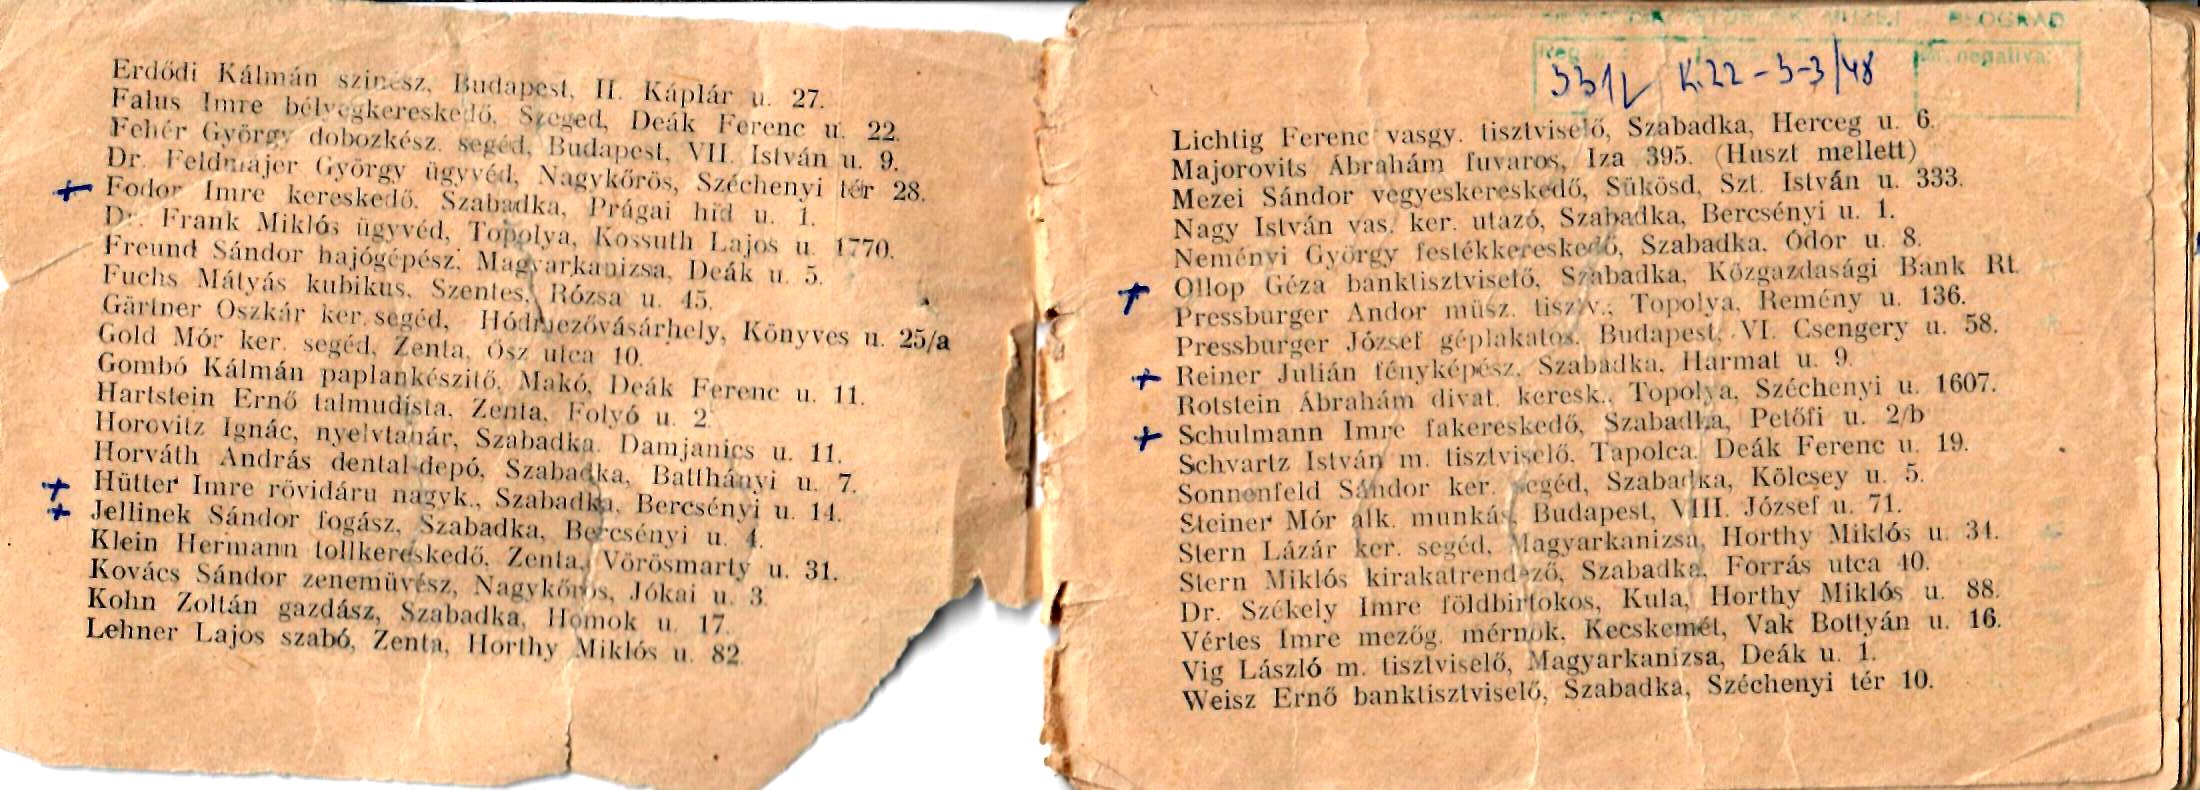 Erdődi Kálmán szinész, Budapest, II. Káplár u. 27.
Falus Imre bélyegkereskedő, Szeged, Deák Ferenc u. 22.
Fehér György dobozkész. segéd, Budapest, VII. István u. 9.
Dr. Feldmájer György ügyvéd, Nagykőrös, Széchenyi tér 28.
+ Fodor Imre kereskedő, Szabadka, Prágai hid u. 1.
Dr. Frank Miklós ügyvéd, Topolya, Kossuth Lajos u. 1770.
Freund Sándor hajógépész, Magyarkanizsa, Deák u. 5.
Fuchs Mátyás kubikus, Szentes, Rózsa u. 45.
Gärtner Oszkár ker. segéd, Hódmezővásárhely, Könyves u. 25/a
Gold Mór ker. segéd, Zenta, Ősz utca 10.
Gombó Kálmán paplankészitő, Makó, Deák Ferenc u. 11.
Hartstein Ernő talmudista, Zenta, Folyó u. 2.
Horovitz Ignác, nyelvtanár, Szabadka. Damjanics u. 11.
Horváth András dental-depó, Szabadka, Batthányi u. 7.
+ Hütter Imre rövidáru nagyk., Szabadka, Bercsényi u. 14.
+ Jellinek Sándor fogász, Szabadka, Bercsényi u. 4.
Klein Hermann tollkereskedő, Zenta, Vörösmarty u. 31.
Kovács Sándor zenemüvész, Nagykőrös, Jókai u. 3.
Kohn Zoltán gazdász, Szabadka, Homok u. 17.
Lehner Lajos szabó, Zenta, Horthy Miklós u. 82.
MUZEJ BEOGRAD
Reg. negativa:
331/ K.22-3-3/48
Lichtig Ferenc vasgy. tisztviselő, Szabadka, Herceg u. 6.
Majorovits Ábrahám fuvaros, Iza 395. (Huszt mellett)
Mezei Sándor vegyeskereskedő, Sükösd, Szt. István u. 333.
Nagy István vas. ker. utazó, Szabadka, Bercsényi u. 1.
Neményi György festékkereskedő, Szabadka, Ódor u. 8.
+ Ollop Géza banktisztviselő, Szabadka, Közgazdasági Bank Rt
Pressburger Andor müsz. tisztv., Topolya, Remény u. 136.
Pressburger József géplakatos, Budapest, VI. Csengery u. 58.
+ Reiner Julián fényképész, Szabadka, Harmat u. 9.
Rotstein Ábrahám divat. keresk., Topolya, Széchenyi u. 1607.
+ Schulmann Imre fakereskedő, Szabadka, Petőfi u. 2/b
Schvartz István m. tisztviselő, Tapolca, Deák Ferenc u. 19.
Sonnenfeld Sándor ker. segéd, Szabadka, Kölcsey u. 5.
Steiner Mór alk. munkás, Budapest, VIII. József u. 71.
Stern Lázár ker. segéd, Magyarkanizsa, Horthy Miklós u. 34.
Stern Miklós kirakatrendező, Szabadka, Forrás utca 40.
Dr. Székely Imre földbirtokos, Kula, Horthy Miklós u. 88.
Vértes Imre mezőg. mérnök, Kecskemét, Vak Bottyán u. 16.
Vig László m. tisztviselő, Magyarkanizsa, Deák u. 1.
Weisz Ernő banktisztviselő, Szabadka, Széchenyi tér 10.